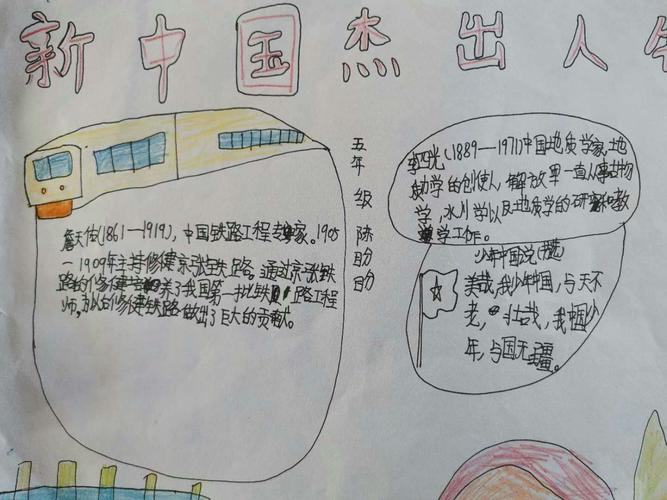 新中国杰出人
五年级 陈盼盼
詹天佑(1861—1919),中国铁路工程专家。1905
—1909年主持修建京张铁路。通过京张铁
路的修建培养了我国第一批铁路工程
师,为修建铁路做出了巨大的贡献。
李四光(1889—1971)中国地质学家,地
质力学的创使人,解放果一直从事古物
学,冰川学以及地质学的研究和教
学工作。
少年中国说
美哉,我少年中国,与天不
老,壮哉,我中国少
年,与国无疆。